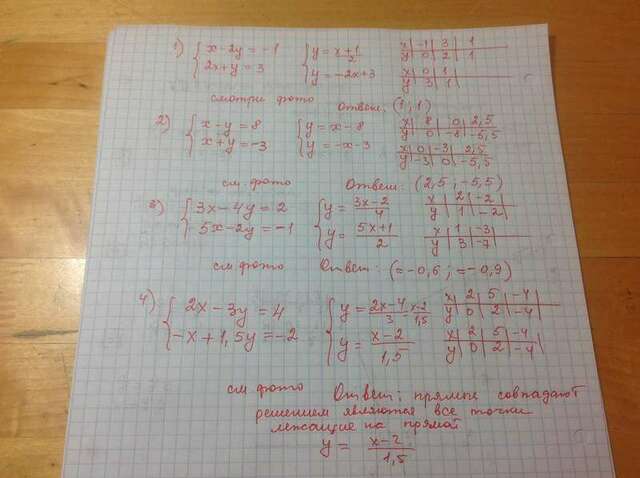 1) { x-2y=-1 { y= x+1/2 x | -1 | 3 | 1
2x+y=3 y=-2x+3 y | 0 | 2 | 1
x | 0 | 1
y | 3 | 1
смотри фото Ответ: (1; 1)
2) { x-y=8 { y=x-8 x | 8 | 0 | 2,5
x+y=-3 y=-x-3 y | 0 | -8 | -5,5
x | 0 | -3 | 2,5
y | -3 | 0 | -5,5
см. фото Ответ: (2,5; -5,5)
3) { 3x-4y=2 { y= 3x-2/4 x | 2 | -2
5x-2y=-1 y= 5x+1/2 y | 1 | -2
x | 1 | -3
y | 3 | -7
см. фото Ответ: (≈-0,6; ≈-0,9)
4) { 2x-3y=4 { y= 2x-4/3 = x-2/1,5 x | 2 | 5 | -4
-x+1,5y=-2 y= x-2/1,5 y | 0 | 2 | -4
x | 2 | 5 | -4
y | 0 | 2 | -4
см фото Ответ: прямые совпадают
решением являются все точки
лежащие на прямой
y = x-2/1,5